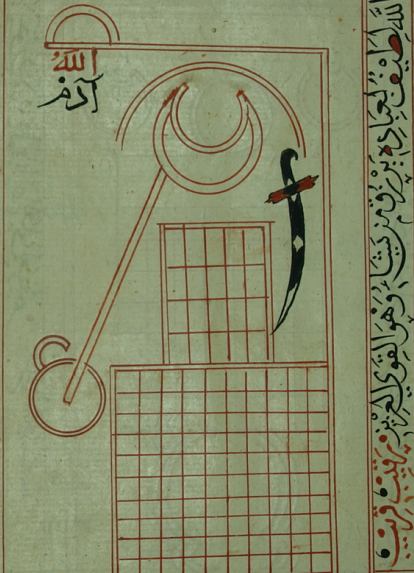 الله
آدم
الله لطيف بعباده يرزق من يشاء وهو القوي العزيز